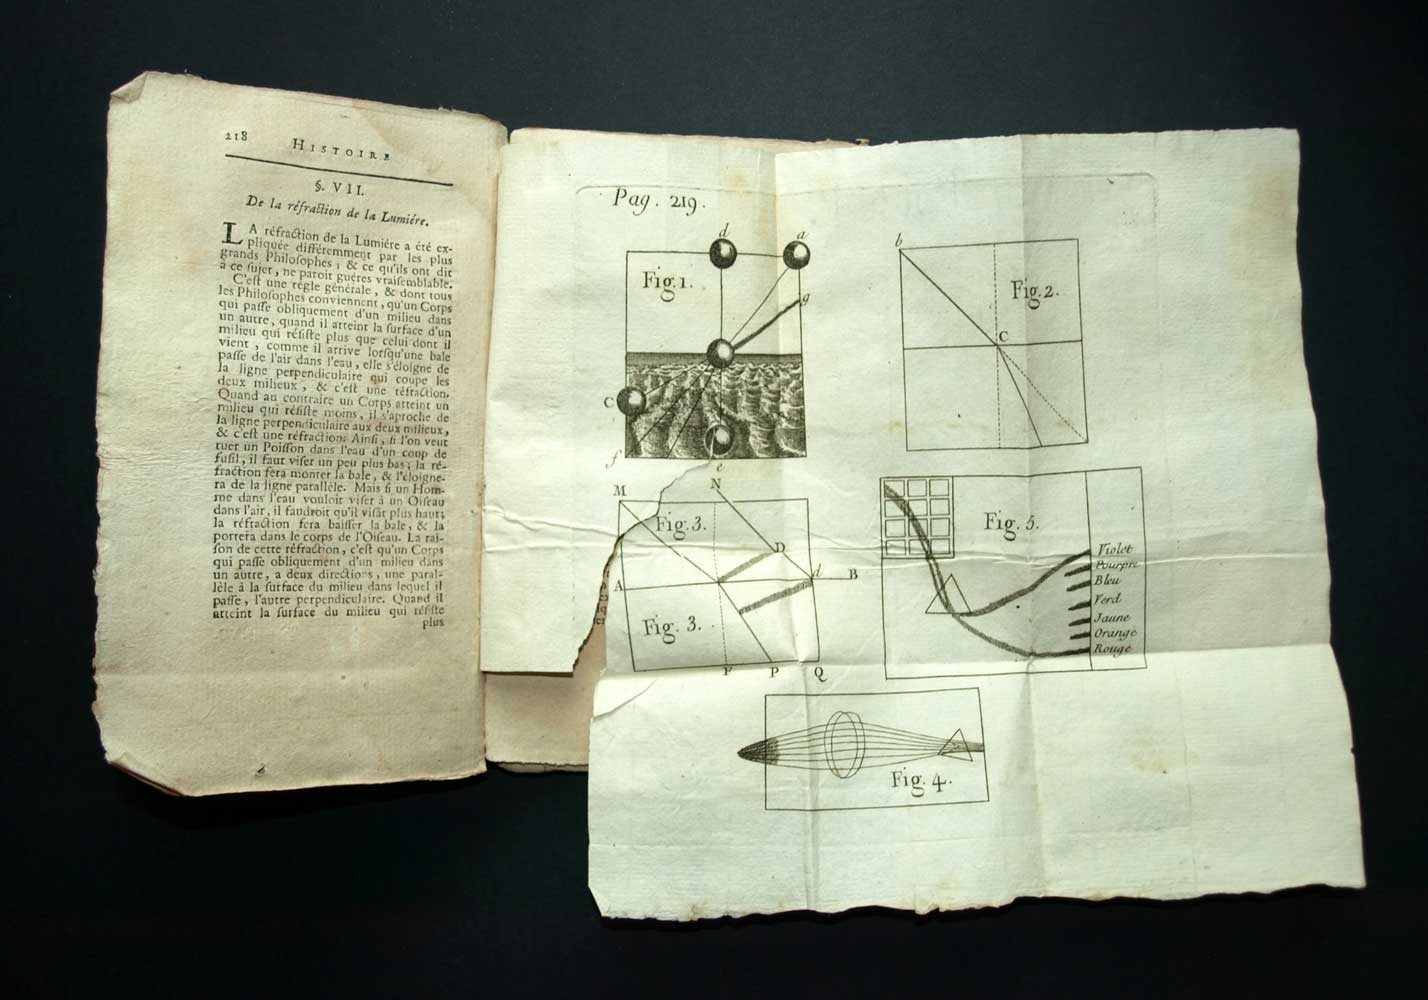 218 HISTOIRE
§. VII.
De la réfraction de la Lumiére.
LA réfraction de la Lumiére a été ex-
pliquée différemment par les plus
grands Philosophes ; & ce qu'ils ont dit
à ce sujet, ne paroit guéres vraisemblable.
C'est une régle générale, & dont tous
les Philosophes conviennent, qu'un Corps
qui passe obliquement d'un milieu dans
un autre, quand il atteint la surface d'un
milieu qui résiste plus que celui dont il
vient, comme il arrive lorsqu'une bale
passe de l'air dans l'eau, elle s'éloigne de
la ligne perpendiculaire qui coupe les
deux milieux, & c'est une réfraction.
Quand au contraire un Corps atteint un
milieu qui résiste moins, il s'aproche de
la ligne perpendiculaire aux deux milieux,
& c'est une réfraction. Ainsi, si l'on veut
tuer un Poisson dans l'eau d'un coup de
fusil, il faut viser un peu plus bas; la ré-
fraction fera monter la bale, & l'éloigne-
ra de la ligne parallèle. Mais si un Hom-
me dans l'eau vouloit viser à un Oiseau
dans l'air, il faudroit qu'il visât plus haut;
la réfraction fera baisser la bale, & la
portera dans le corps de l'Oiseau. La rai-
son de cette réfraction, c'est qu'un Corps
qui passe obliquement d'un milieu dans
un autre, a deux directions, une paral-
lèle à la surface du milieu dans lequel il
passe, l'autre perpendiculaire. Quand il
atteint la surface du milieu qui résiste
plus
Pag. 219.
d a
Fig. 1.
g
C
f e
b
Fig. 2.
C
M N
Fig. 3.
D
A d B
Fig. 3.
F P Q
Fig. 5.
Violet
Pourpre
Bleu
Verd
Jaune
Orange
Rouge
Fig. 4.